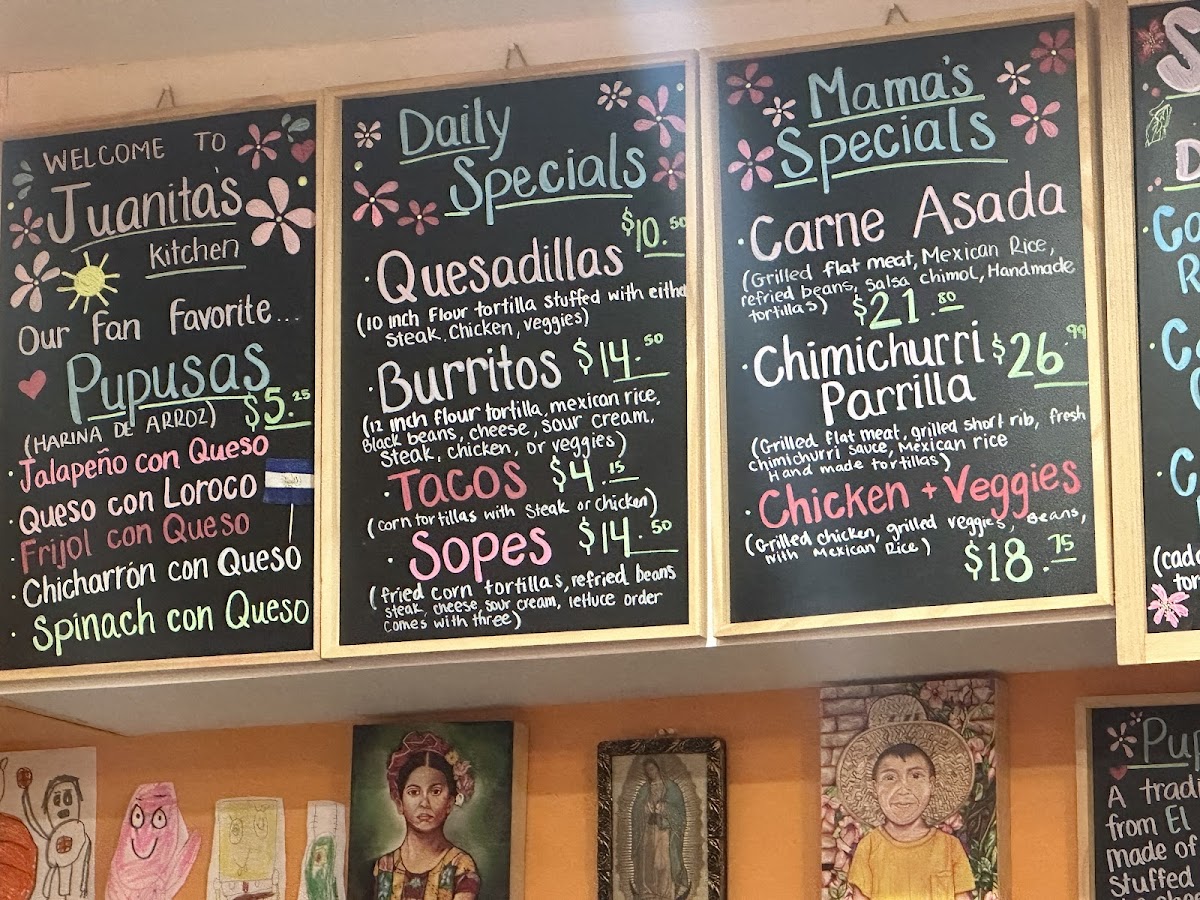 WELCOME TO
Juanita's
Kitchen
Our fan favorite...
Pupusas
(HARINA DE ARROZ) $5.25
· Jalapeño con Queso
· Queso con Loroco
· Frijol con Queso
· Chicharrón con Queso
· Spinach con Queso
Daily
Specials
$10.50
· Quesadillas
(10 inch flour tortilla stuffed with eithe
Steak, Chicken, veggies)
· Burritos $14.50
(12 inch flour tortilla, mexican rice,
Black beans, cheese, sour cream,
Steak, chicken, or veggies)
· TACOS $4.15
(corn tortillas with Steak or chicken)
· Sopes $14.50
(fried corn tortillas, refried beans
steak, cheese, sour cream, lettuce order
comes with three)
Mama's
Specials
· Carne Asada
(Grilled flat meat, Mexican Rice,
refried beans, Salsa Chimol, Handmade
tortillas) $21.80
· Chimichurri $26.99
Parrilla
(Grilled flat meat, grilled short rib, fresh
chimichurri sauce, Mexican rice
Hand made tortillas)
· Chicken + Veggies
(Grilled chicken, grilled veggies, Beans,
with Mexican Rice)
$18.75
S
D
· Ca
R
· C
· C
(cad
tor
Pup
A tradi
from El
made of
Stuffed